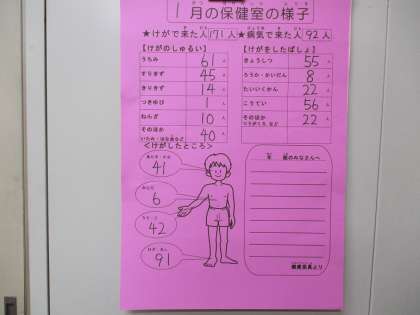 1月の保健室の様子
★けがで来た人171人★病気で来た人92人
【けがのしゅるい】 【けがをしたばしょ】
うちみ 61人 きょうしつ 55人
すりきず 45人 ろうか・かいだん 8人
きりきず 14人 たいいくかん 22人
つきゆび 1人 こうてい 56人
ねんざ 10人 そのほか 22人
そのほか 40人
<けがしたところ>
41
6
42
91
年 組のみなさんへ
健康委員より